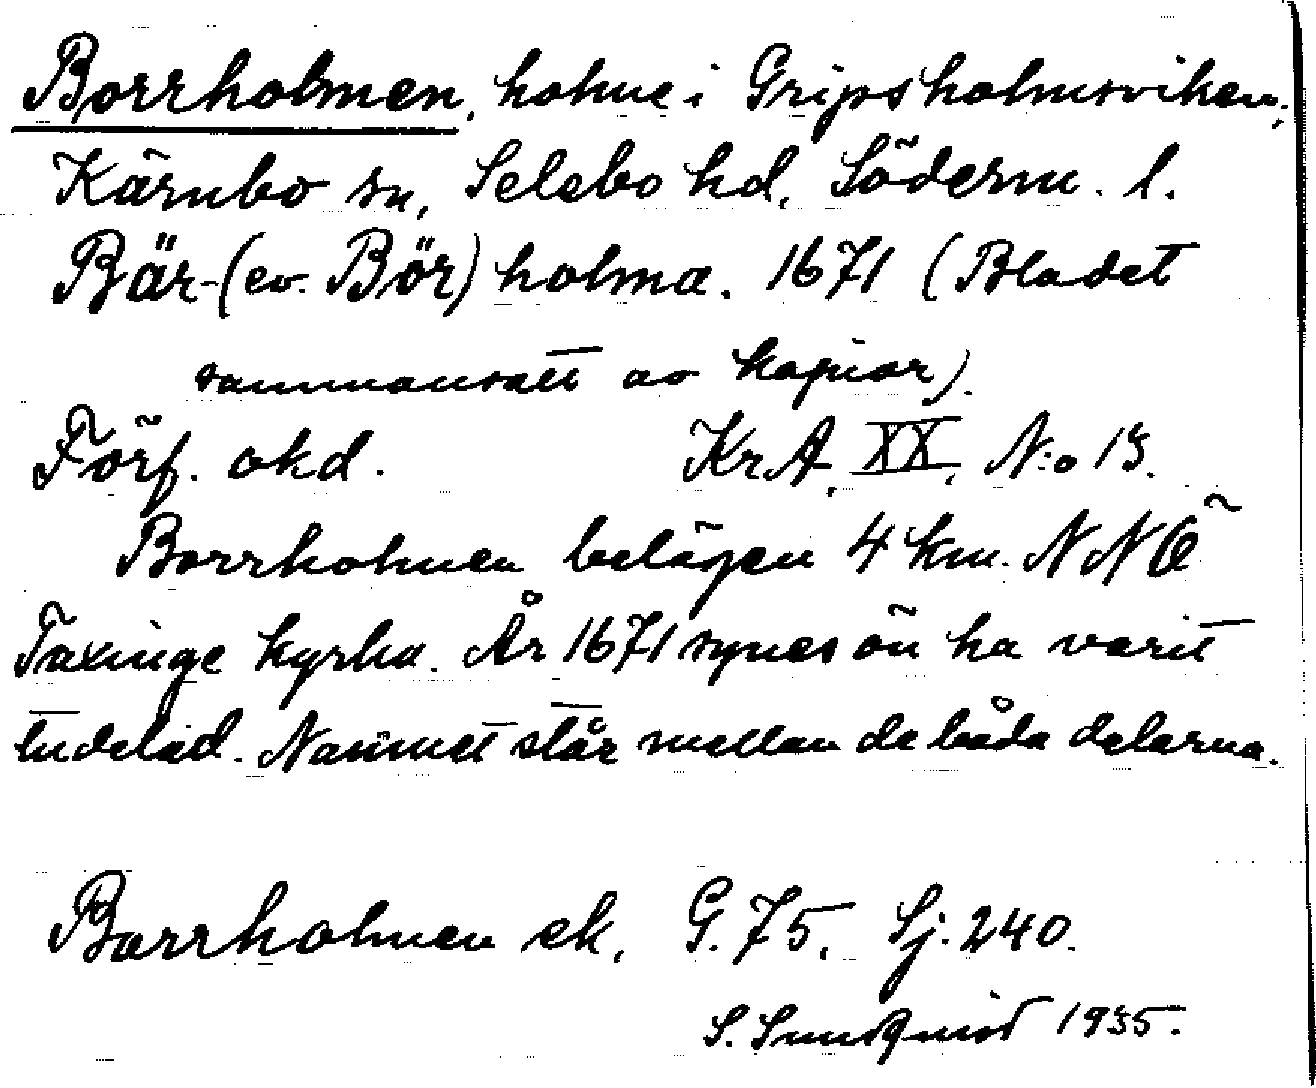 Borrholmen, holme i Gripsholmsviken,
Kärnbo sn, Selebo hd, Söderm. l.
Bär-(ev. Bör)holma. 1671 (Bladet
sammansatt av kopior).
Förf. okd. KrA, XX, N:o 13.
Borrholmen belägen 4 km. NNÖ
Taxinge kyrka. År 1671 synes ön ha varit
tudelad. Namnet står mellan de båda delarna.
Borrholmen ek. G. 75. Sj. 240.
S. Sundqvist 1935.